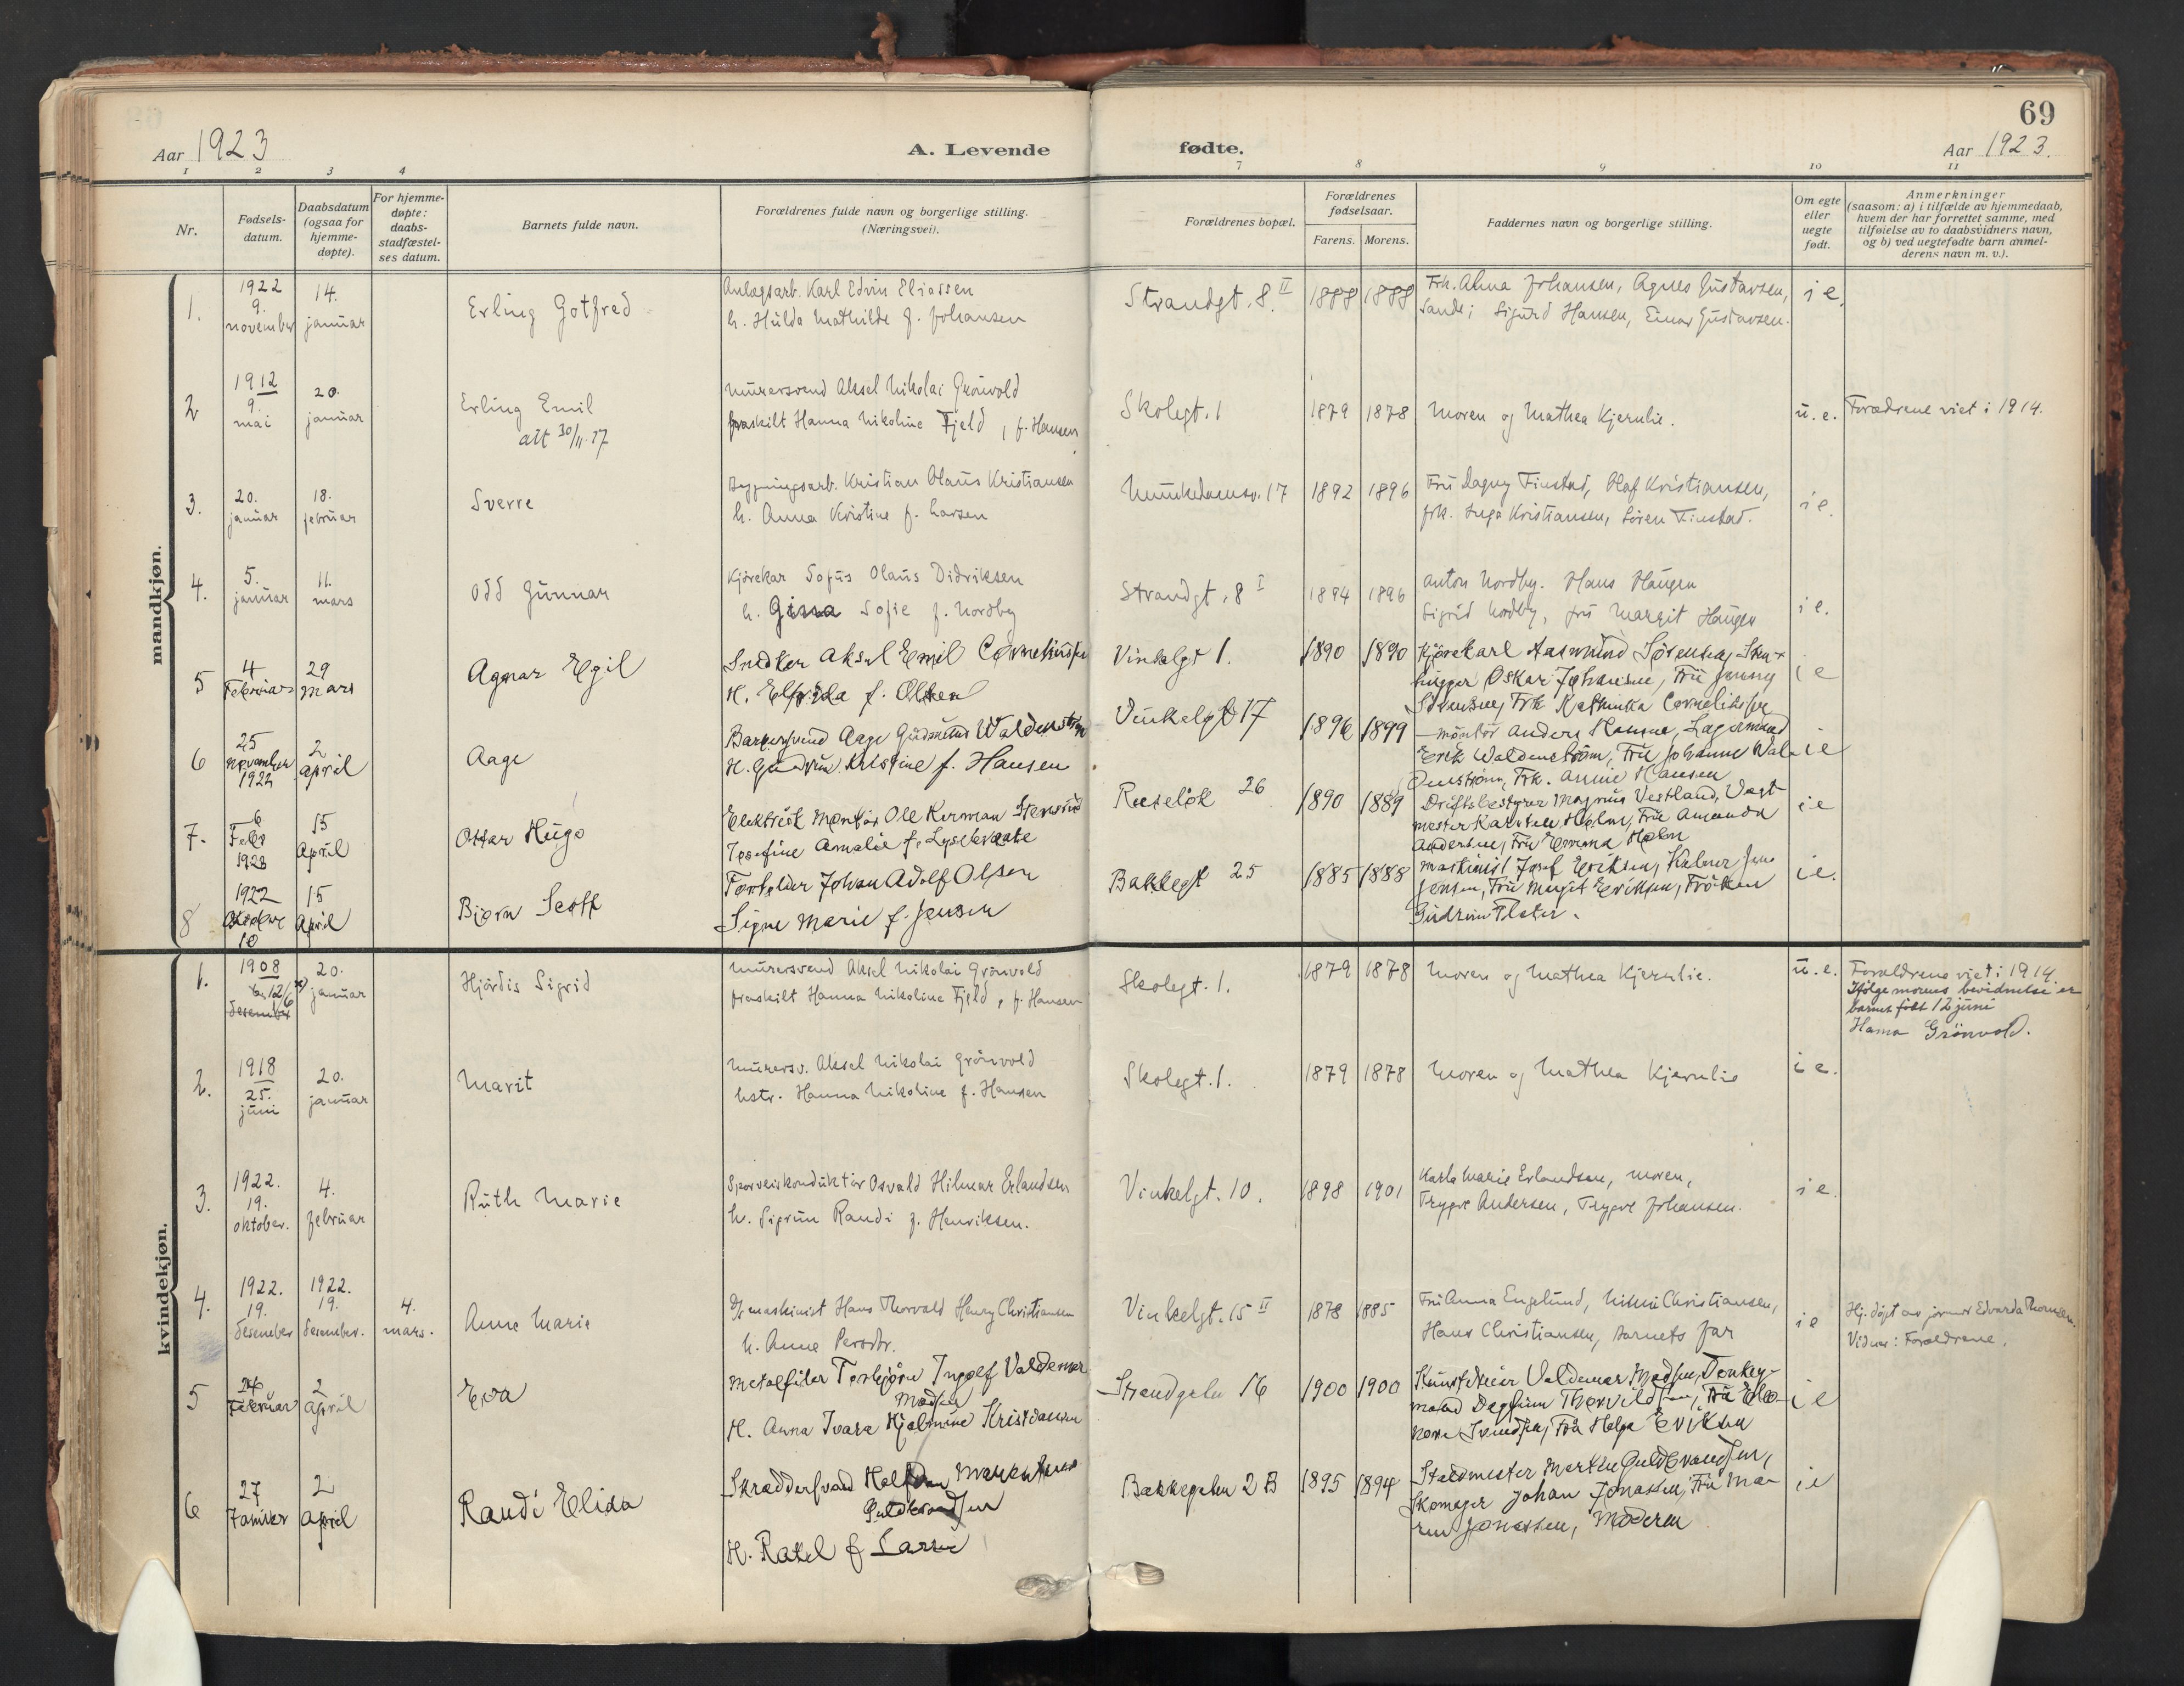 69
Aar 1923
A. Levende
fødte.
Aar 1923.
1 2 3 4
7 8 9 10 11
Nr.
Fødsels-
datum.
Daabsdatum
(ogsaa for
hjemme-
døpte).
For hjemme-
døpte:
daabs-
stadfæstel-
ses datum.
Barnets fulde navn.
Forældrenes fulde navn og borgerlige stilling.
(Næringsvei).
Forældrenes bopæl.
Forældrenes
fødselsaar.
Farens. Morens.
Faddernes navn og borgerlige stilling.
Om egte
eller
uegte
født.
Anmerkninger
(saasom: a) i tilfælde av hjemmedaab,
hvem der har forrettet samme, med
tilføielse av to daabsvidners navn,
og b) ved uegtefødte barn anmel-
derens navn m. v.).
mandkjøn.
1.
1922
9.
november
14.
januar
Erling Gotfred
Anlægsarb. Karl Edvin Eliassen
h. Hulda Mathilde f. Johansen
Strandgt. 8 II
1888 1888
Frk. Alma Johansen, Agnes Gustavsen,
Sande; Sigurd Hansen, Einar Gustavsen.
i e.
2
1912
9.
mai
20.
januar
Erling Emil
att 30/11.17
Murersvend Aksel Nikolai Grönvold
fraskilt Hanna Nikoline Fjeld, f. Hansen
Skolegt. 1
1879 1878
Moren og Mathea Kjernlie.
u. e.
Forældrene viet i 1914.
3.
20.
januar
18.
februar
Sverre
Bygningsarb. Kristian Olaus Kristiansen
h. Anna Kristine f. Larsen
Munkedamsv. 17
1892 1896
Fru Dagny Finstad, Olaf Kristiansen,
frk. Inga Kristiansen, Sören Finstad.
i e.
4.
5.
januar
11.
mars
Odd Gunnar
Kjörekar Sofus Olaus Didriksen
h. Gina Sofie f. Nordby
Strandgt. 8 I
1894 1896
Anton Nordby. Hans Haugen
Sigrid Nordby, fru Margit Haugen
i e.
5
4
Februar
29
Mars
Agnar Egil
Snedker Aksel Emil Corneliussen
H. Elfrida f. Olsen
Vinkelgt 1.
1890 1890
Kjørekarl Aasmund Sørensen, Sten-
hugger Oskar Johansen, Fru Jenny
Sørensen, Frk Kathinka Corneliussen
i e
6
25
November
1922
2
april
Aage
Barbersvend Aage Gudmund Waldenström
H. Gudrun Kristine f. Hansen
Vinkelgt 17
1896 1899
montör Anders Hansen, Lagermand
Erik Waldenström, Fru Johanne Wal-
denström, Frk. Annie Hansen
i e
7.
6
Febr
1923
15
April
Ottar Hugo
Elektrisk Montör Ole Herman Stensrud
Josefine Amalie f. Lysebraate
Ruseløk 26
1890 1889
Driftsbestyrer Magnus Vestland, Vagt-
mester Karsten Holm, Fru Amanda
Andersen, Fru Emma Holm
i e
8
1922
Oktober
10
15
April
Bjørn Scott
Forholder Johan Adolf Olsen
Signe Marie f. Jensen
Bakkegt 25
1885 1888
Maskinist Josef Eriksen, Kelner Jens
Jensen, Fru Margit Eriksen, Frøken
Gudrun Flater.
i e.
kvindekjøn.
1.
1908
12/6
desember
20.
januar
Hjördis Sigrid
Murersvend Aksel Nikolai Grönvold
fraskilt Hanna Nikoline Fjeld, f. Hansen
Skolegt. 1.
1879 1878
Moren og Mathea Kjernlie.
u. e.
Forældrene viet i 1914
Ifølge morens bevidnelse er
barnet født 12 juni
Hanna Grönvold.
2.
1918
25.
juni
20.
januar
Marit
Murersv. Aksel Nikolai Grönvold
hstr. Hanna Nikoline f. Hansen
Skolegt. 1.
1879 1878
Moren og Mathea Kjernlie
i e.
3.
1922.
19.
oktober.
4.
februar
Ruth Marie
Sporveiskonduktör Osvald Hilmar Erlandsen
h. Sigrun Randi f. Henriksen.
Vinkelgt. 10.
1898 1901
Karla Marie Erlandsen, moren,
Trygve Andersen, Trygve Johansen.
i e.
4.
1922.
19.
desember
1922.
19.
desember.
4.
mars.
Anne Marie
D/s maskinist Hans Thorvald Henry Christiansen
h. Anne Persdtr.
Vinkelgt. 15 II
1878 1885
Fru Anna Englund, Christiansen,
Hans Christiansen, barnets far
i e
Hj. døpt av jormor Edvarda Thomsen.
Vidner: Forældrene.
5
24
Februar
2
April
Eva
Metalfiler Torbjørn Ingolf Valdemar
Madsen
H. Anna Ivara Hjalmine Kristiansen
Strandgaten 16
1900 1900
Valdemar Madsen, Donkey-
mand Dagfinn Thorvildsen, Fru Eleo-
nora Svendsen, Fru Helga Eriksen
i e
6
27
Januar
2
April
Randi Elida
Skræddersvend Halfdan Marentius
Guldbrandsen
H. Rakel f Larsen
Bakkegaten 2 B
1895 1894
Staldmester Martin Guldbrandsen,
Skomager Johan Jonassen, Fru Ma-
ren Jonassen, Moderen
i e